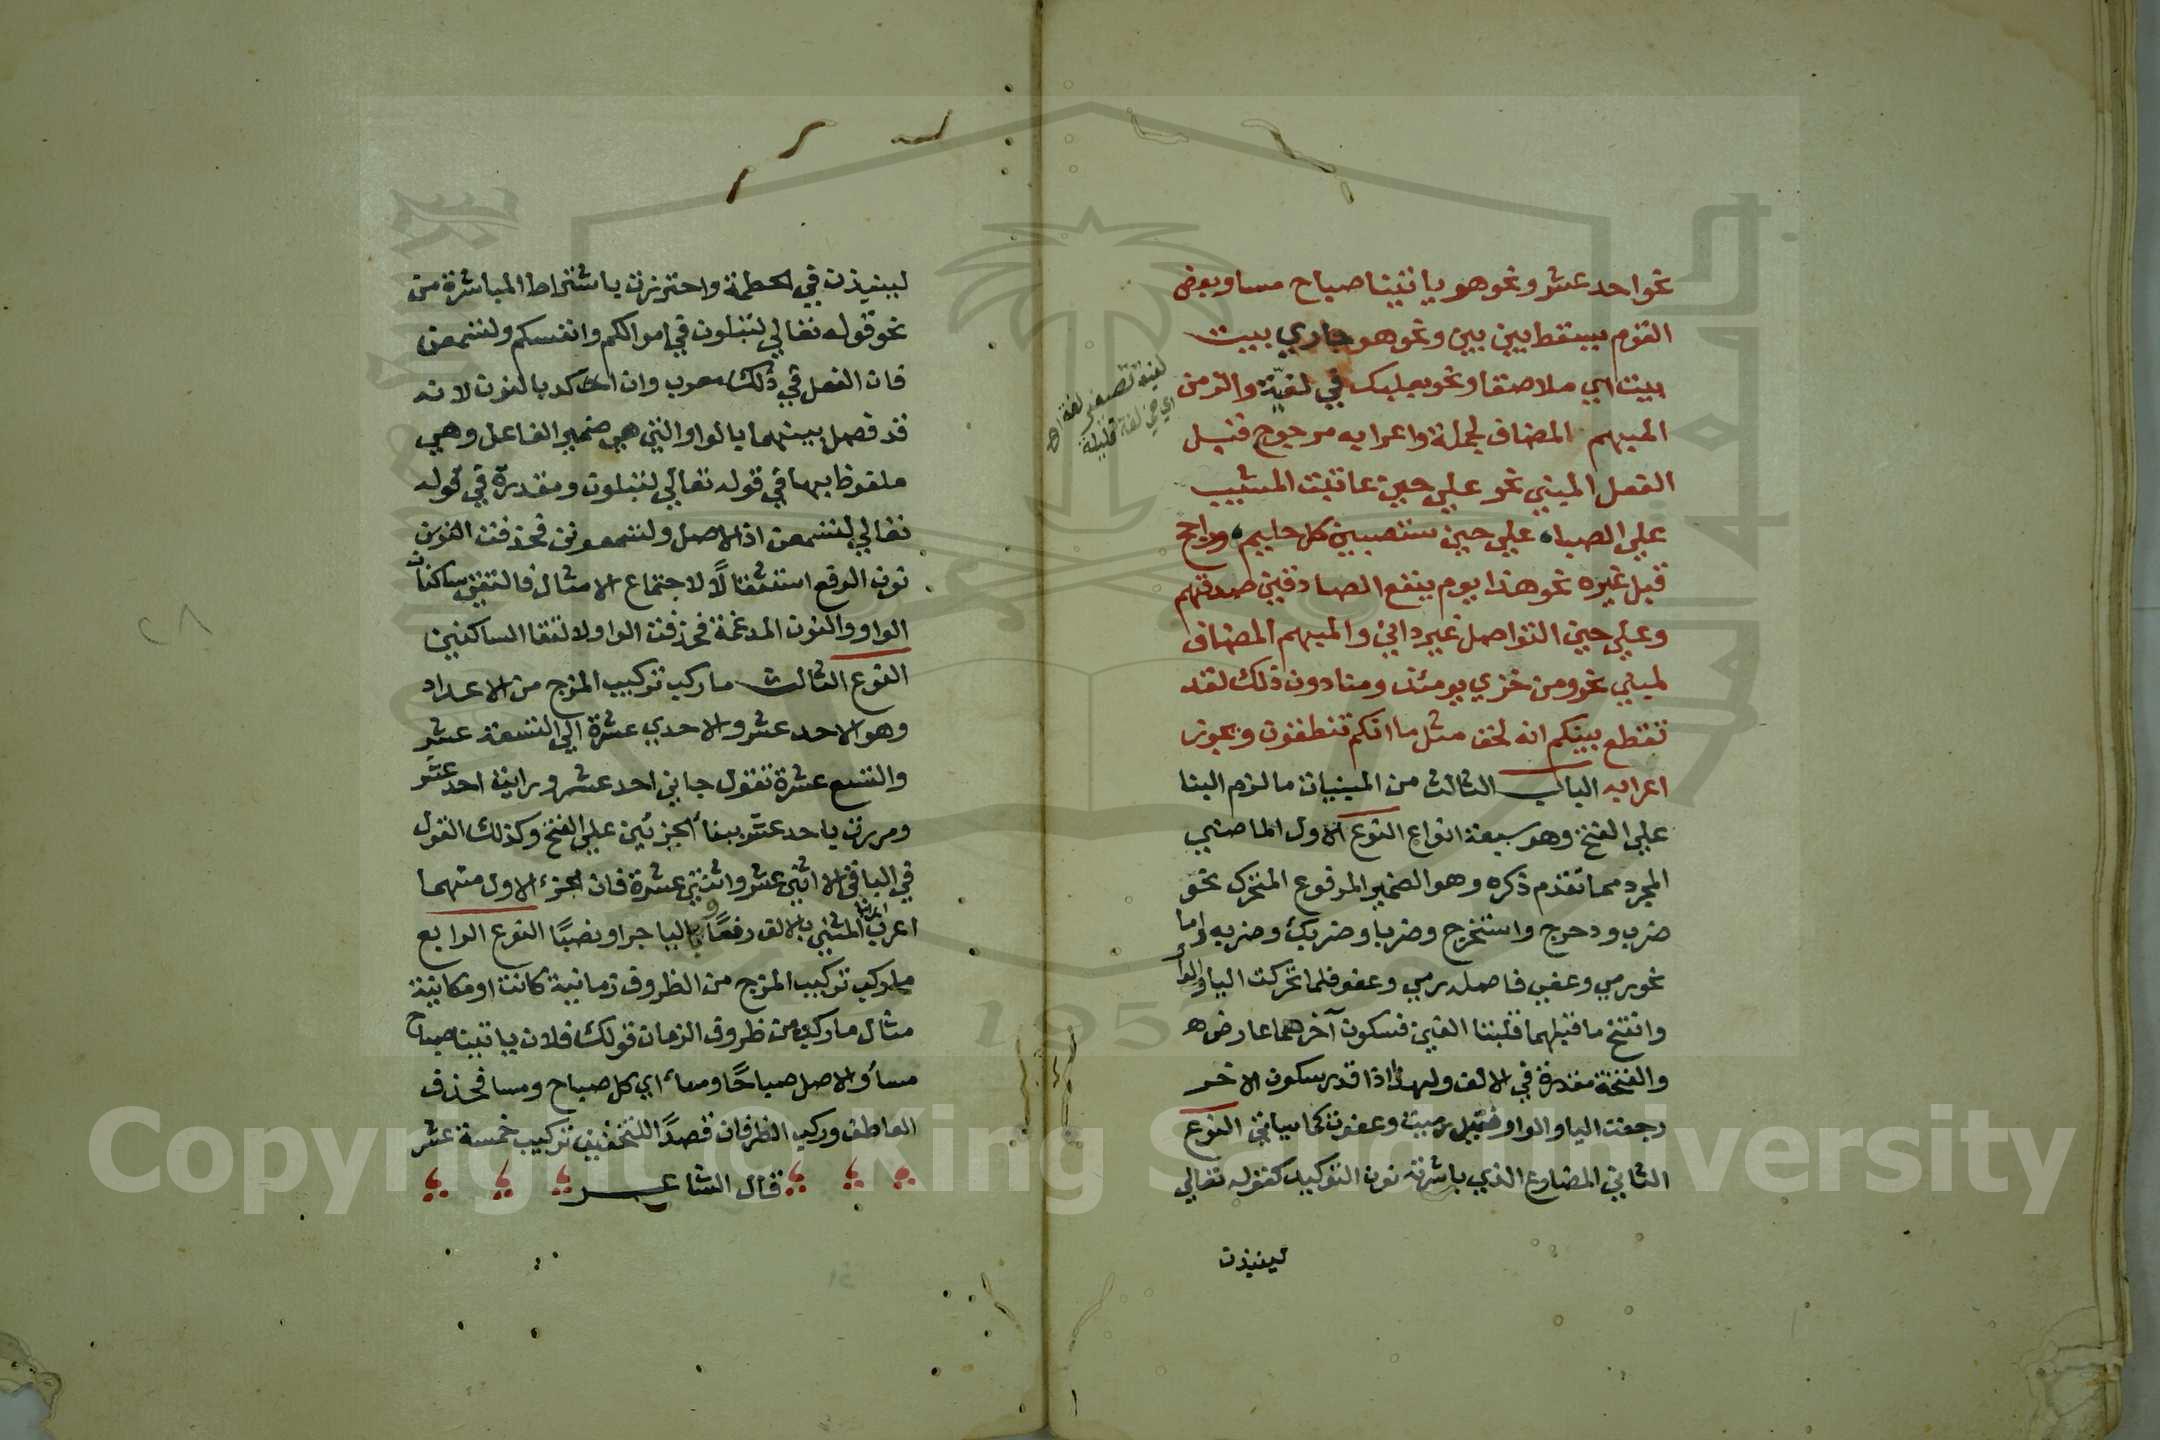 نحو احد عشر ونحو هو ياتينا صباح مسا وبعض
القوم يسقط بين بين ونحو هو جاري بيت
بيت اي ملاصقا ونحو بعلبك في لغية والزمن
المبهم المضاف لجملة واعرابه مرجوح قبل
الفعل المبني نحو علي حين عاتبت المشيب
علي الصبا، علي حين يستصبين كل حليم، وراجح
قبل غيره نحو هذا يوم ينفع الصادقين صدقهم
وعلي حين التواصل غير داني والمبهم المضاف
لمبني نحو ومن خزي يومئذ ومنا دون ذلك لقد
تقطع بينكم انه لحق مثل ما انكم تنطقون ويجوز
اعرابه الباب الثالث من المبنيات ما لزم البنا
علي الفتح وهو سبعة انواع النوع الاول الماضي
المجرد مما تقدم ذكره وهو الضمير المرفوع المتحرك نحو
ضرب ودحرج واستخرج وضربا وضربك وضربه واما
نحو رمي وعفي فاصله رمي وعفو فلما تحركت اليا والواو
وانفتح ما قبلهما قلبتا الفين فسكون آخرهما عارض
والفتحة مقدرة في الالف ولهذا اذا قدر سكون الاخر
رجعت اليا والواو فقيل رميت وعفوت كما سياتي النوع
الثاني المضارع الذي باشرته نون التوكيد كقوله تعالي
لينبذن
لغية تصغير لغة اه
اي في لغة قليلة
لينبذن في الحطمة واحترزت باشتراط المباشرة من
نحو قوله تعالي لتبلون في اموالكم وانفسكم ولتسمعن
فان الفعل في ذلك معرب وان اكد بالنون لانه
قد فصل بينهما بالواو التي هي ضمير الفاعل وهي
ملفوظ بها في قوله تعالي لتبلون ومقدرة في قوله
تعالي لتسمعن اذ الاصل ولتسمعونن فحذفت النون
نون الرفع استثقالًا لاجتماع الامثال فالتقي ساكنان
الواو والنون المدغمة فحذفت الواو لالتقا الساكنين
النوع الثالث ما ركب تركيب المزج من الاعداد
وهو الاحد عشر والاحدي عشرة الي التسعة عشر
والتسع عشرة تقول جاني احد عشر ورايت احد عشر
ومررت باحد عشر ببناء الجزئين علي الفتح وكذلك القول
في الباقي الا اثني عشر واثنتي عشرة فان الجزء الاول منهما
اعرب اعراب المثني بالالف رفعًا وباليا جرا ونصبًا النوع الرابع
ما ركب تركيب المزج من الظروف زمانية كانت او مكانية
مثال ما ركب من ظروف الزمان قولك فلان ياتينا صباح
مساء والاصل صباحًا ومساء اي كل صباح ومسا فحذف
العاطف وركب الظرفان قصدًا للتخفيف تركيب خمسة عشر
قال الشاعر
٢٨
Copyright © King Saud University
1957